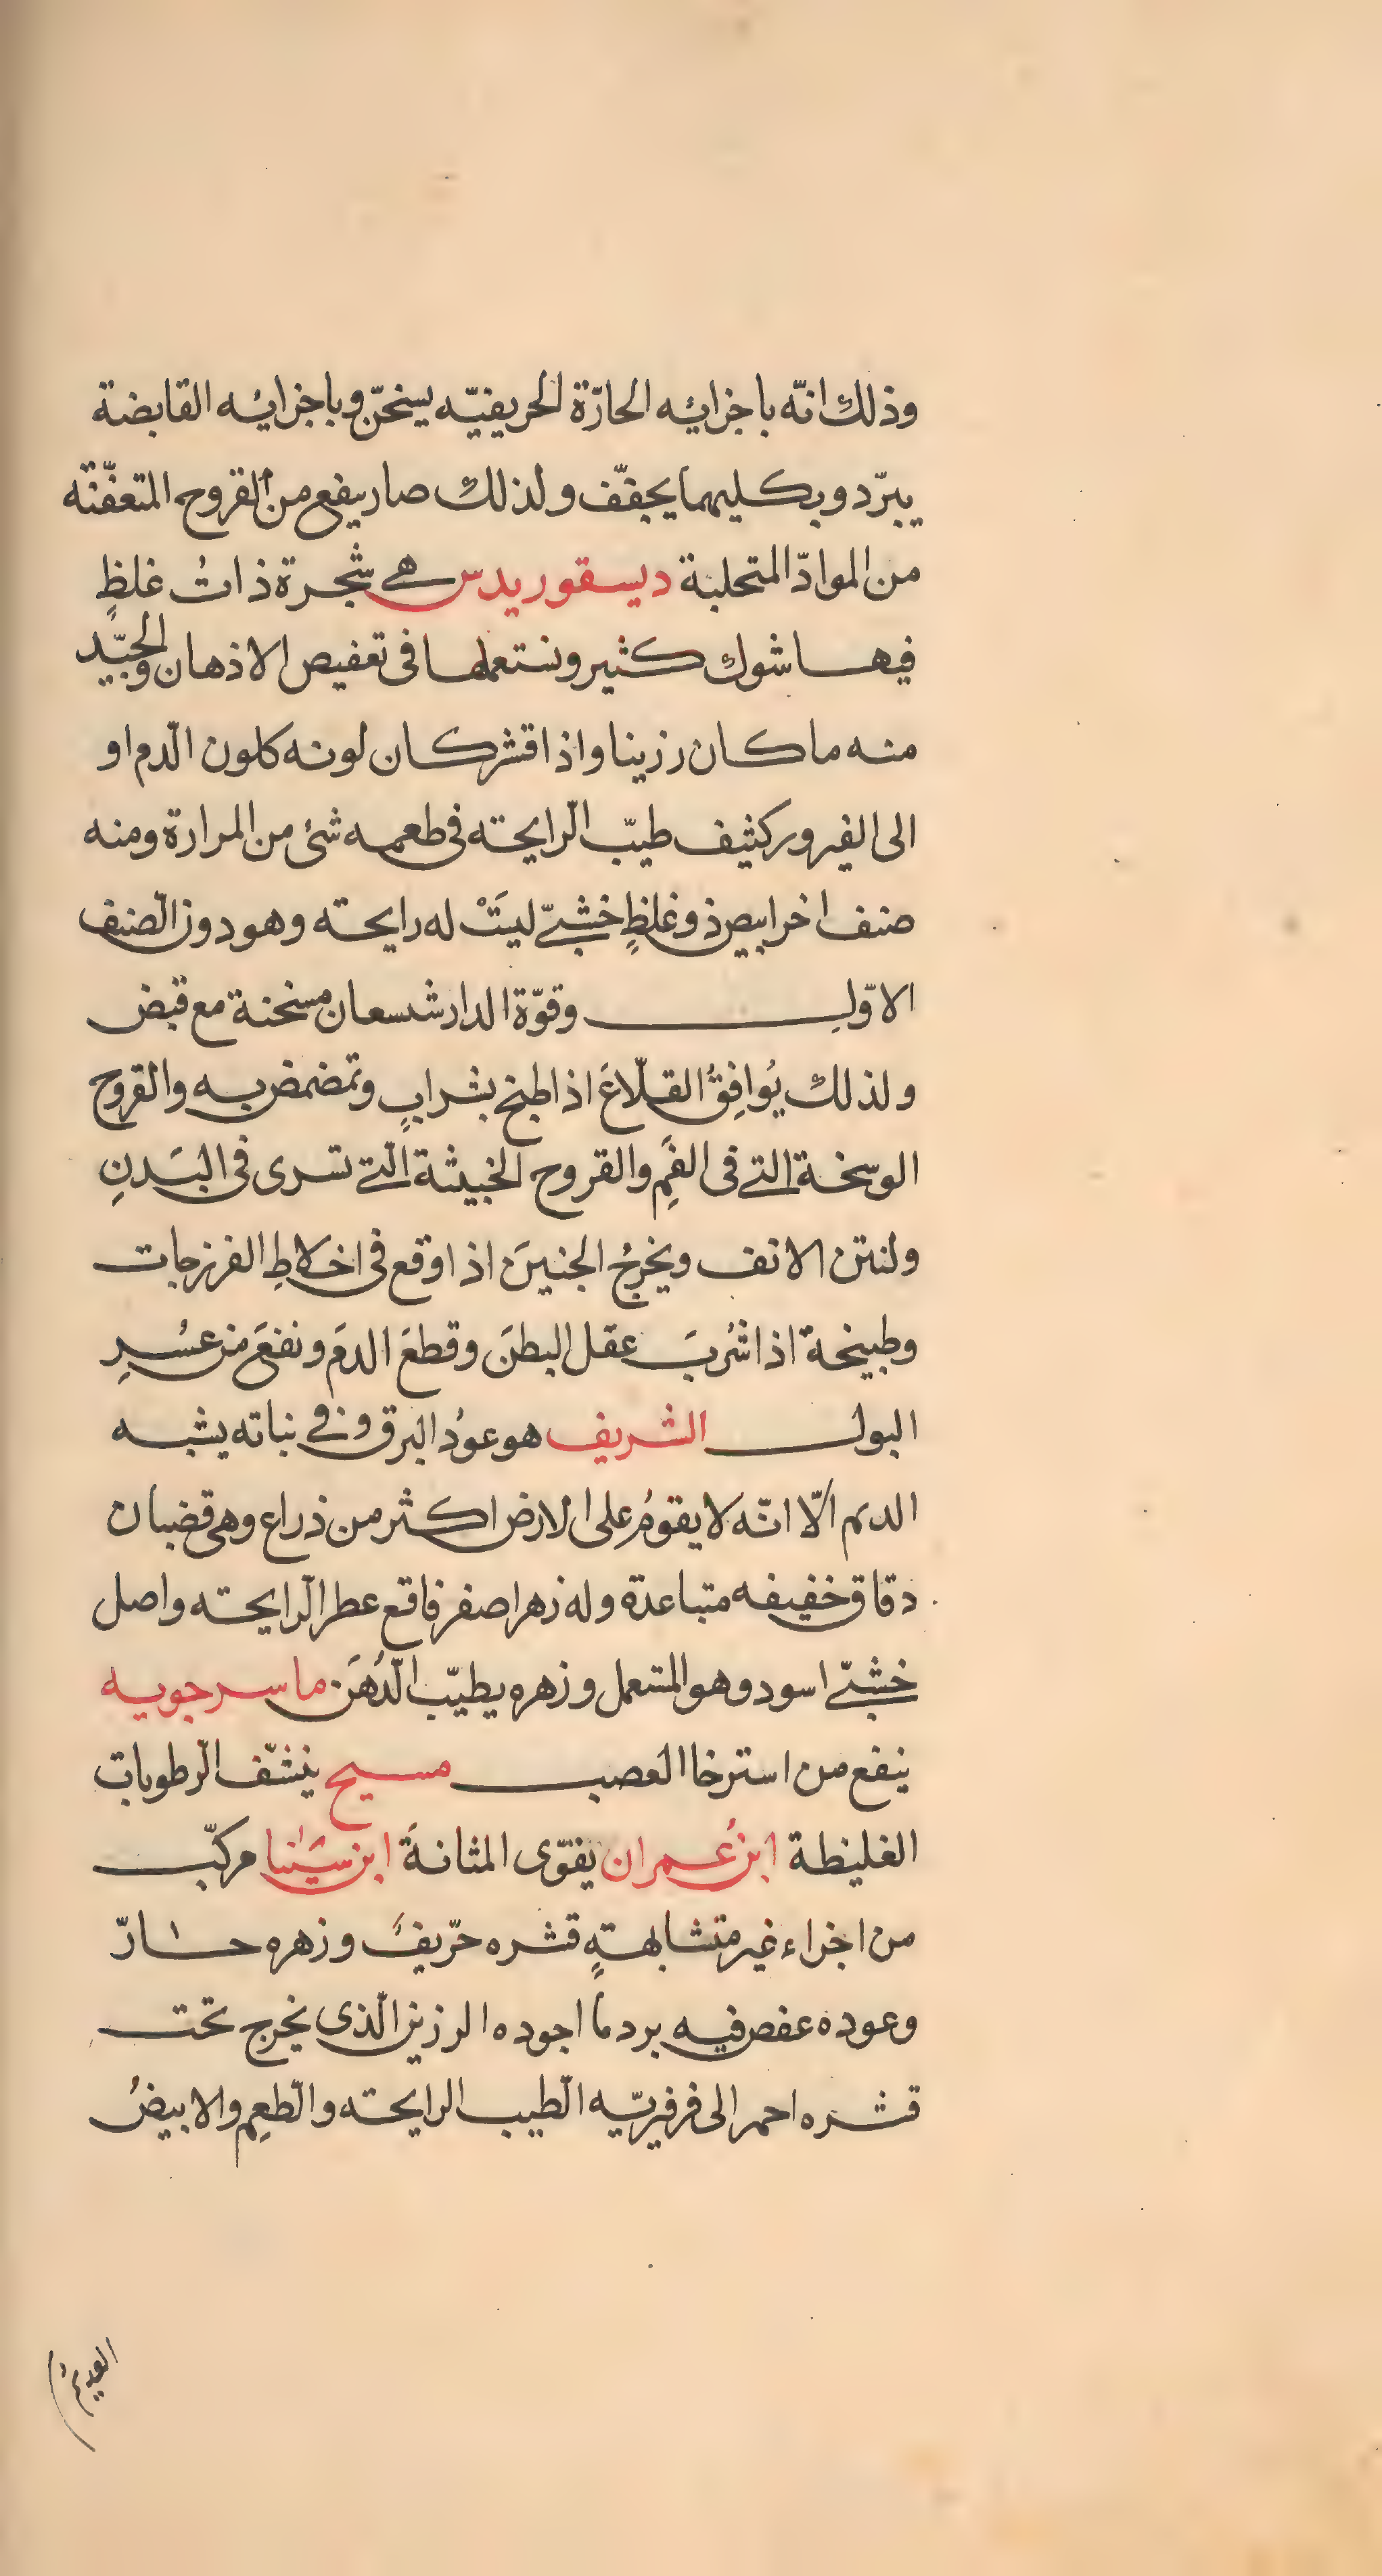 وذلك انّه باجزائه الحارّة الحريفيّه يسخّن وباجزائه القابضة
يبرّد وبكليهما يجفّف ولذلك صار ينفع من القروح المتعفّنه
من الموادّ المتحلبة ديسقوريدس هي شجرة ذاتُ غلظٍ
فيها شوك كثير ونستعملها في تعفيص الاذهان والجيّد
منه ما كان رزينا واذا قشر كان لونه كلون الدم او
الى الفيرور كثيف طيّب الرايحته في طعمه شئ من المرارة ومنه
صنف اخر ابيض ذو غلظٍ خشبيّ ليتْ له رايحته وهو دون الصنف
الاوّل وقوّة الدارشسعان مسخنة مع قبض
ولذلك يُوافِقُ القلّاعَ اذا طبخ بشرابٍ وتمضمض به والقروح
الوسخة التي في الفَمِ والقروح الخبيثة الّتي تسرى في البَدنِ
ولنتن الانف ويخرجُ الجنينَ اذا وقع في اخلاطِ الفرزجات
وطبيخة اذا شُربَ عقل البطنَ وقطعَ الدمَ ونفعَ من عسُرِ
البول الشريف هو عوُد البرق وفي نباته يشبه
الديم الّا انّه لا يقومُ على الارض اكثر من ذراع وهي قضبان
دقاق خفيفه متباعدة وله زهر اصفر فاقع عطر الرايحته واصل
خشبيّ اسود وهو المتعمل وزهره يطيّب الدُهنَ ماسرجويه
ينفع من استرخا العصب مسيح ينشّف الرطوبات
الغليظة ابن عُمران يقوّى المثانةَ ابن سينا مركّب
من اجزاء غير متشابهتهٍ قشره حرّيفٌ وزهره حارّ
وعوده عفص فيه برد ما اجوده الرزين الّذى يخرج تحت
قشره احمر الى فرفيريّه الطيب الرايحته والطعِم والابيضُ
العديمُ